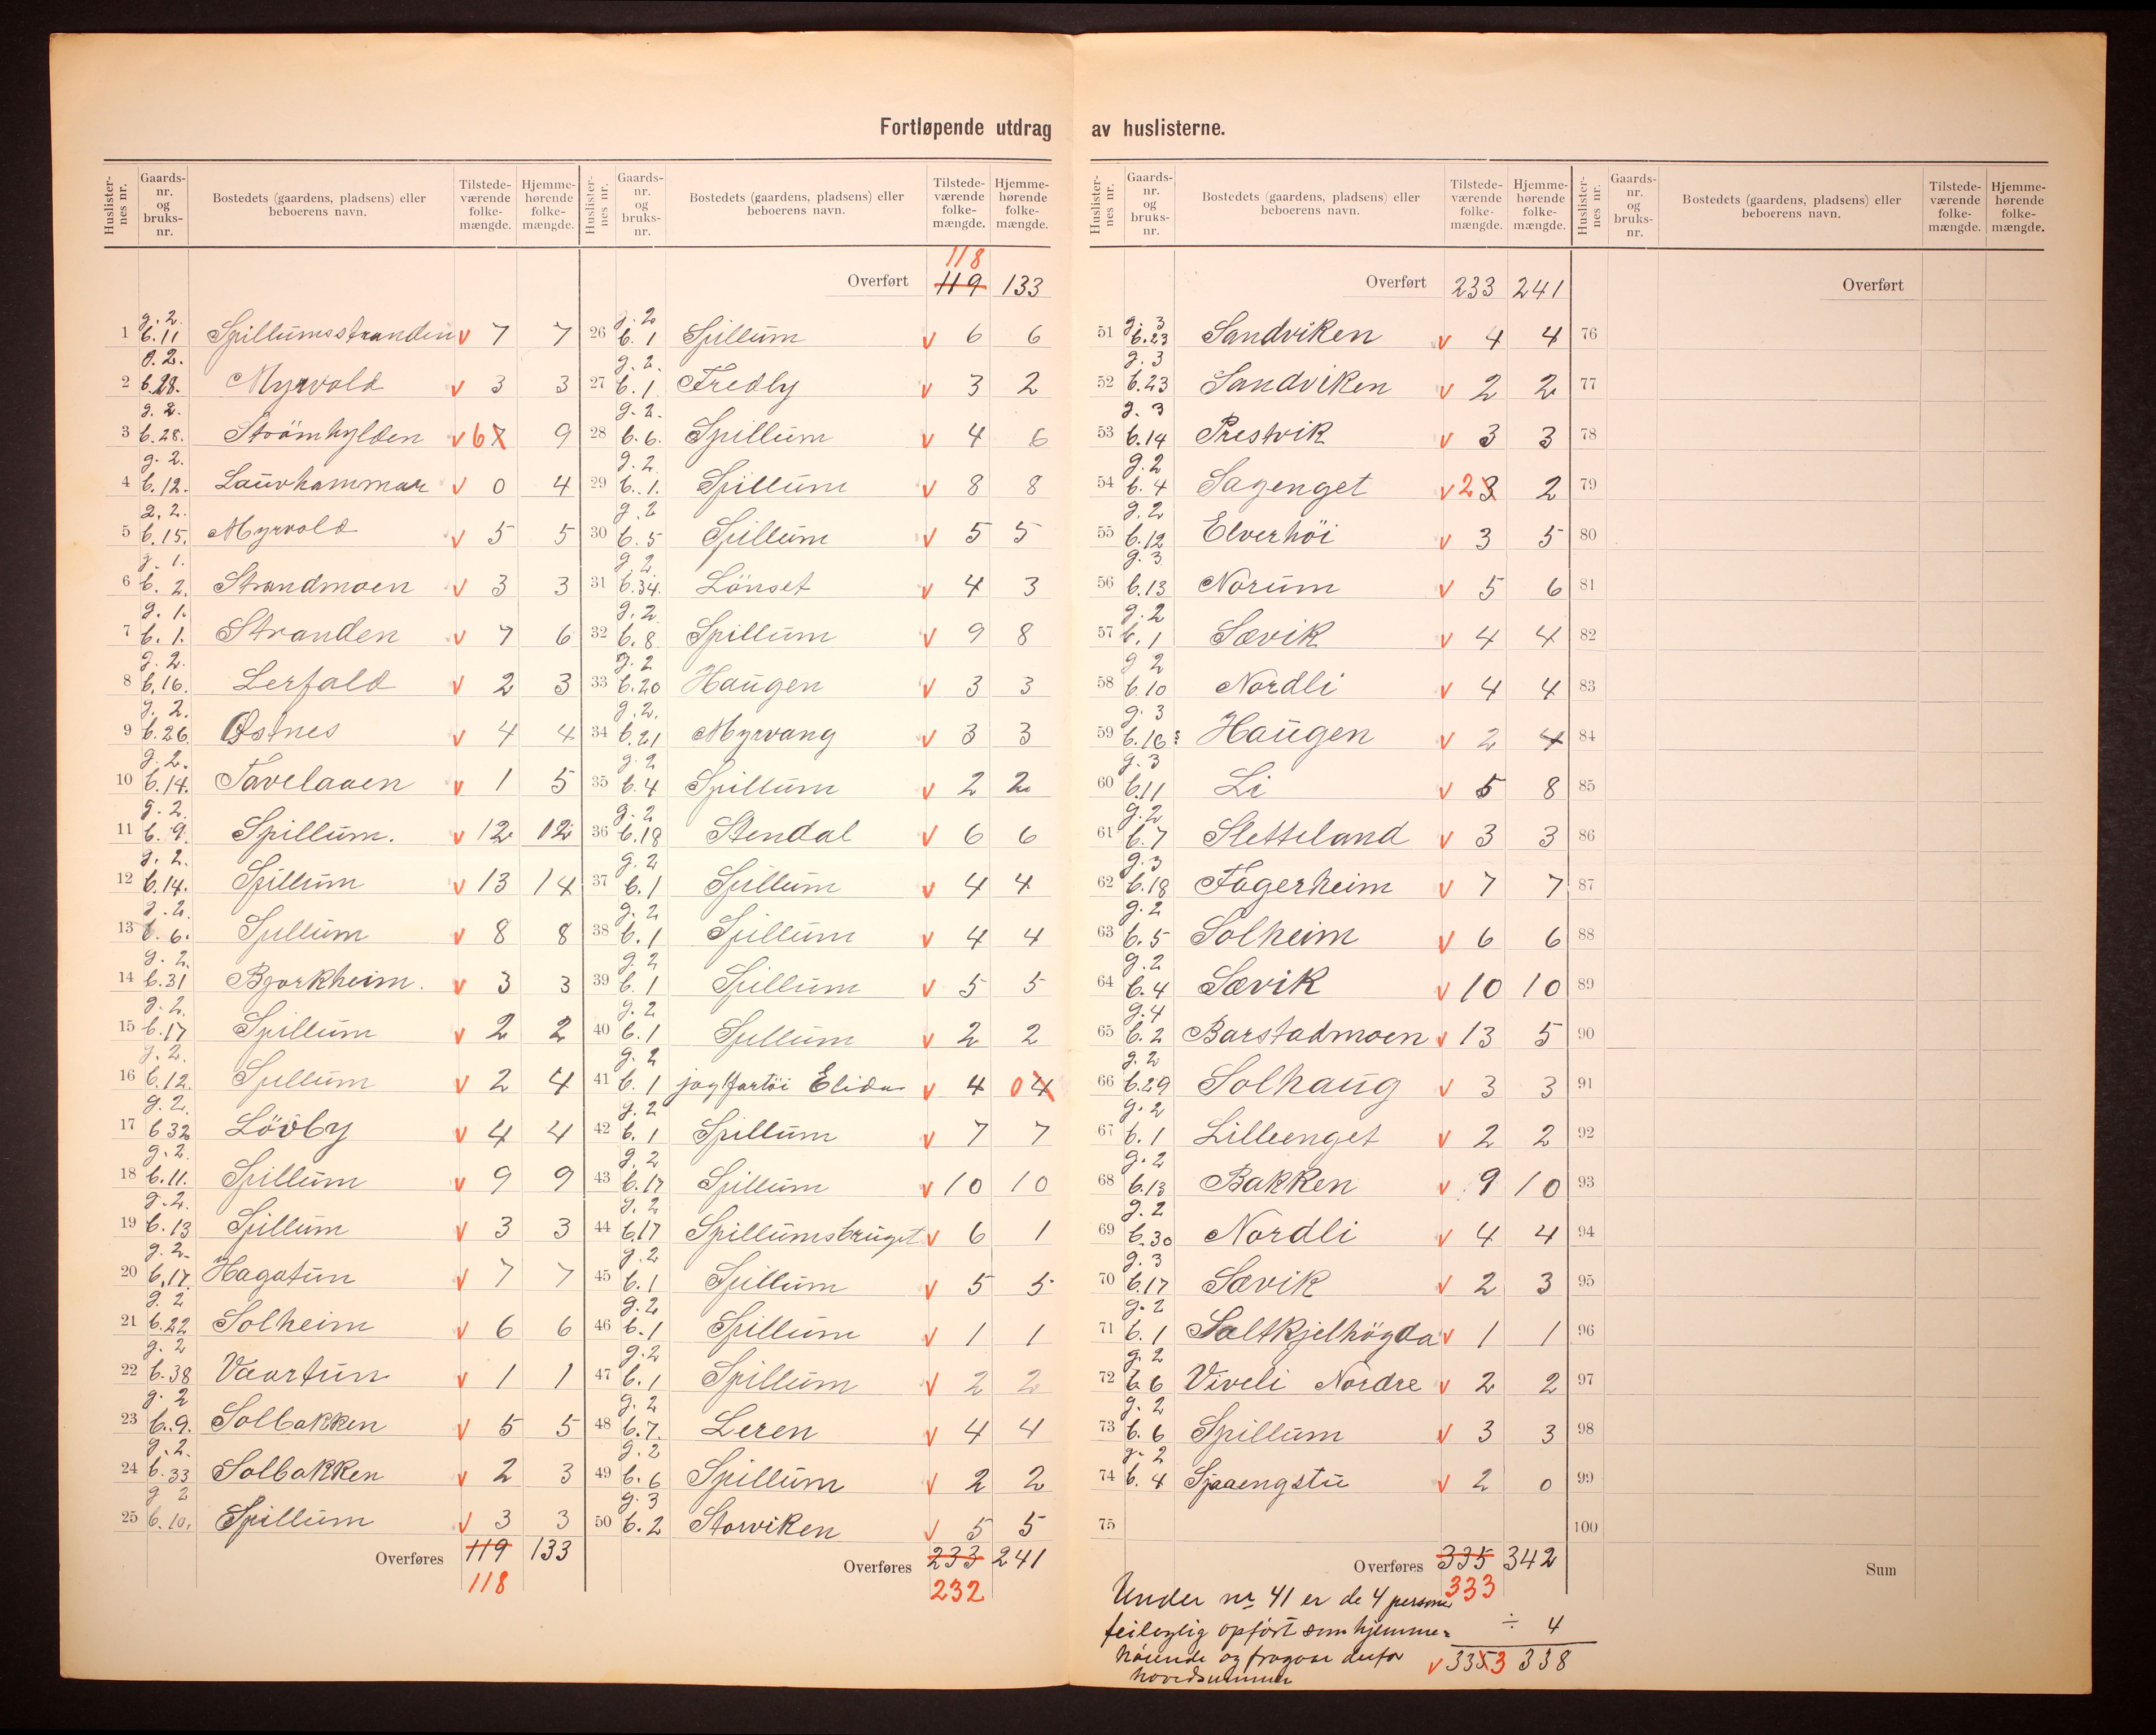 Fortløpende utdrag av huslisterne.
Huslisternes nr. Gaards-nr. og bruks-nr. Bostedets (gaardens, pladsens) eller beboerens navn. Tilstedeværende folkemængde. Hjemmehørende folkemængde.
1 g. 2. b. 11 Spillumsstranden v 7 7
2 g. 2. b. 28. Myrvold v 3 3
3 g. 2. b. 28. Strömhylden v 6 7 9
4 g. 2. b. 12. Lauvhammar v 0 4
5 g. 2. b. 15. Myrvold v 5 5
6 g. 1. b. 2. Strandmoen v 3 3
7 g. 1. b. 1. Stranden v 7 6
8 g. 2. b. 16. Lerfald v 2 3
9 g. 2. b. 26. Østnes v 4 4
10 g. 2. b. 14. Tavelaaen v 1 5
11 g. 2. b. 9. Spillum. v 12 12
12 g. 2. b. 14. Spillum v 13 14
13 g. 2. b. 6. Spillum v 8 8
14 g. 2. b. 31 Bjorkheim. v 3 3
15 g. 2. b. 17 Spillum v 2 2
16 g. 2. b. 12. Spillum v 2 4
17 g. 2. b 32 Lövby v 4 4
18 g. 2. b. 11. Spillum v 9 9
19 g. 2. b. 13 Spillum v 3 3
20 g. 2. b. 17. Hagatun v 7 7
21 g. 2 b. 22 Solheim v 6 6
22 g. 2 b. 38 Vaartun v 1 1
23 g. 2 b. 9. Solbakken v 5 5
24 g. 2. b. 33 Solbakken v 2 3
25 g 2 b. 10. Spillum v 3 3
Overføres 119 133
118
Huslisternes nr. Gaards-nr. og bruks-nr. Bostedets (gaardens, pladsens) eller beboerens navn. Tilstedeværende folkemængde. Hjemmehørende folkemængde.
118
Overført 119 133
26 g. 2 b. 1 Spillum v 6 6
27 g. 2. b. 1 Fredly v 3 2
28 g. 2. b. 6. Spillum v 4 6
29 g. 2 b. 1. Spillum v 8 8
30 g. 2 b. 5 Spillum v 5 5
31 g. 2 b. 34. Lönset v 4 3
32 g. 2 b. 8 Spillum v 9 8
33 g. 2 b. 20 Haugen v 3 3
34 g. 2. b. 21 Myrvang v 3 3
35 g. 2 b. 4 Spillum v 2 2
36 g. 2 b. 18 Stendal v 6 6
37 g. 2 b. 1 Spillum v 4 4
38 g. 2 b. 1 Spillum v 4 4
39 g. 2 b. 1 Spillum v 5 5
40 g. 2 b. 1 Spillum v 2 2
41 g. 2 b. 1 Elida v 4 0 4
42 g. 2 b. 1 Spillum v 7 7
43 g. 2 b. 17 Spillum v 10 10
44 g. 2 b. 17 Spillumsbruget v 6 1
45 g. 2 b. 1 Spillum v 5 5
46 g. 2 b. 1 Spillum v 1 1
47 g. 2 b. 1 Spillum v 2 2
48 g. 2 b. 7. Leren v 4 4
49 g. 2 b. 6 Spillum v 2 2
50 g. 3 b. 2 Storviken v 5 5
Overføres 233 241
232
Huslisternes nr. Gaards-nr. og bruks-nr. Bostedets (gaardens, pladsens) eller beboerens navn. Tilstedeværende folkemængde. Hjemmehørende folkemængde.
Overført 233 241
51 g. 3 b. 23 Sandviken v 4 4
52 g. 3 b. 23 Sandviken v 2 2
53 g. 3 b. 14 Prestvik v 3 3
54 g. 2 b. 4 Sagenget v 2 3 2
55 g. 2 b. 12 Elverhöi v 3 5
56 g. 3 b. 13 Norum v 5 6
57 g. 2 b. 1 Sævik v 4 4
58 g 2 b. 10 Nordli v 4 4
59 g. 3 b. 16 Haugen v 2 4
60 g. 3 b. 11 Li v 5 8
61 g. 2 b. 7 Sletteland v 3 3
62 g. 3 b. 18 Fagerheim v 7 7
63 g. 2 b. 5 Solheim v 6 6
64 g. 2 b. 4 Sævik v 10 10
65 g. 4 b. 2 Barstadmoen v 13 5
66 g. 2 b. 29 Solhaug v 3 3
67 g. 2 b. 1 Lilleenget v 2 2
68 g. 2 b. 13 Bakken v 9 10
69 g. 2 b. 30 Nordli v 4 4
70 g. 3 b. 17 Sævik v 2 3
71 g. 2 b. 1 Saltkjelhögda v 1 1
72 g. 2 b. 6 Viveli Nordre v 2 2
73 g. 2 b. 6 Spillum v 3 3
74 g. 2 b. 4 Spaaengstu v 2 0
75
Overføres 335 342
333
Under nr 41 er de 4 personer
feilagtig opført som hjemme= ÷ 4
hørende og fragaar derfor v 335 3 338
hovedsummen
Huslisternes nr. Gaards-nr. og bruks-nr. Bostedets (gaardens, pladsens) eller beboerens navn. Tilstedeværende folkemængde. Hjemmehørende folkemængde.
Overført
76
77
78
79
80
81
82
83
84
85
86
87
88
89
90
91
92
93
94
95
96
97
98
99
100
Sum